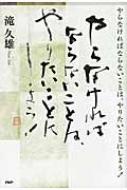 やらなければならないことは、やりたいことにしよう!
滝久雄
やらなければ
ならないことは、
やりたいことに
しよう!
PHP